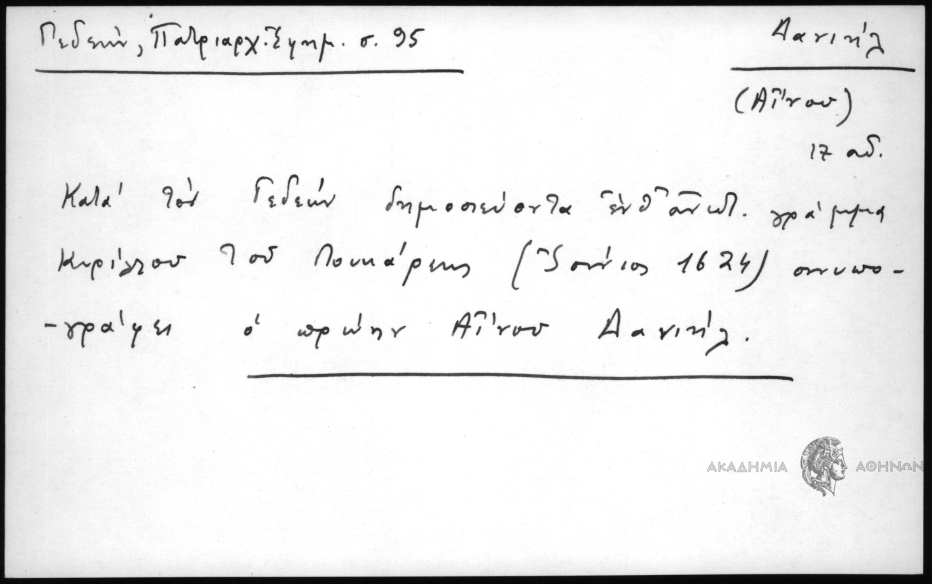 Γεδεών, Πατριαρχ. Ἐφημ. σ. 95
Δανιήλ
(Αἴνου)
17 αἰ.
Κατά τόν Γεδεών δημοσιεύοντα ἐνθ' ἀνωτ. γράμμα
Κυρίλλου τοῦ Λουκάρεως (Ἰούνιος 1624) συνυπο-
-γράφει ὁ πρώην Αἴνου Δανιήλ.
ΑΚΑΔΗΜΙΑ ΑΘΗΝΩΝ